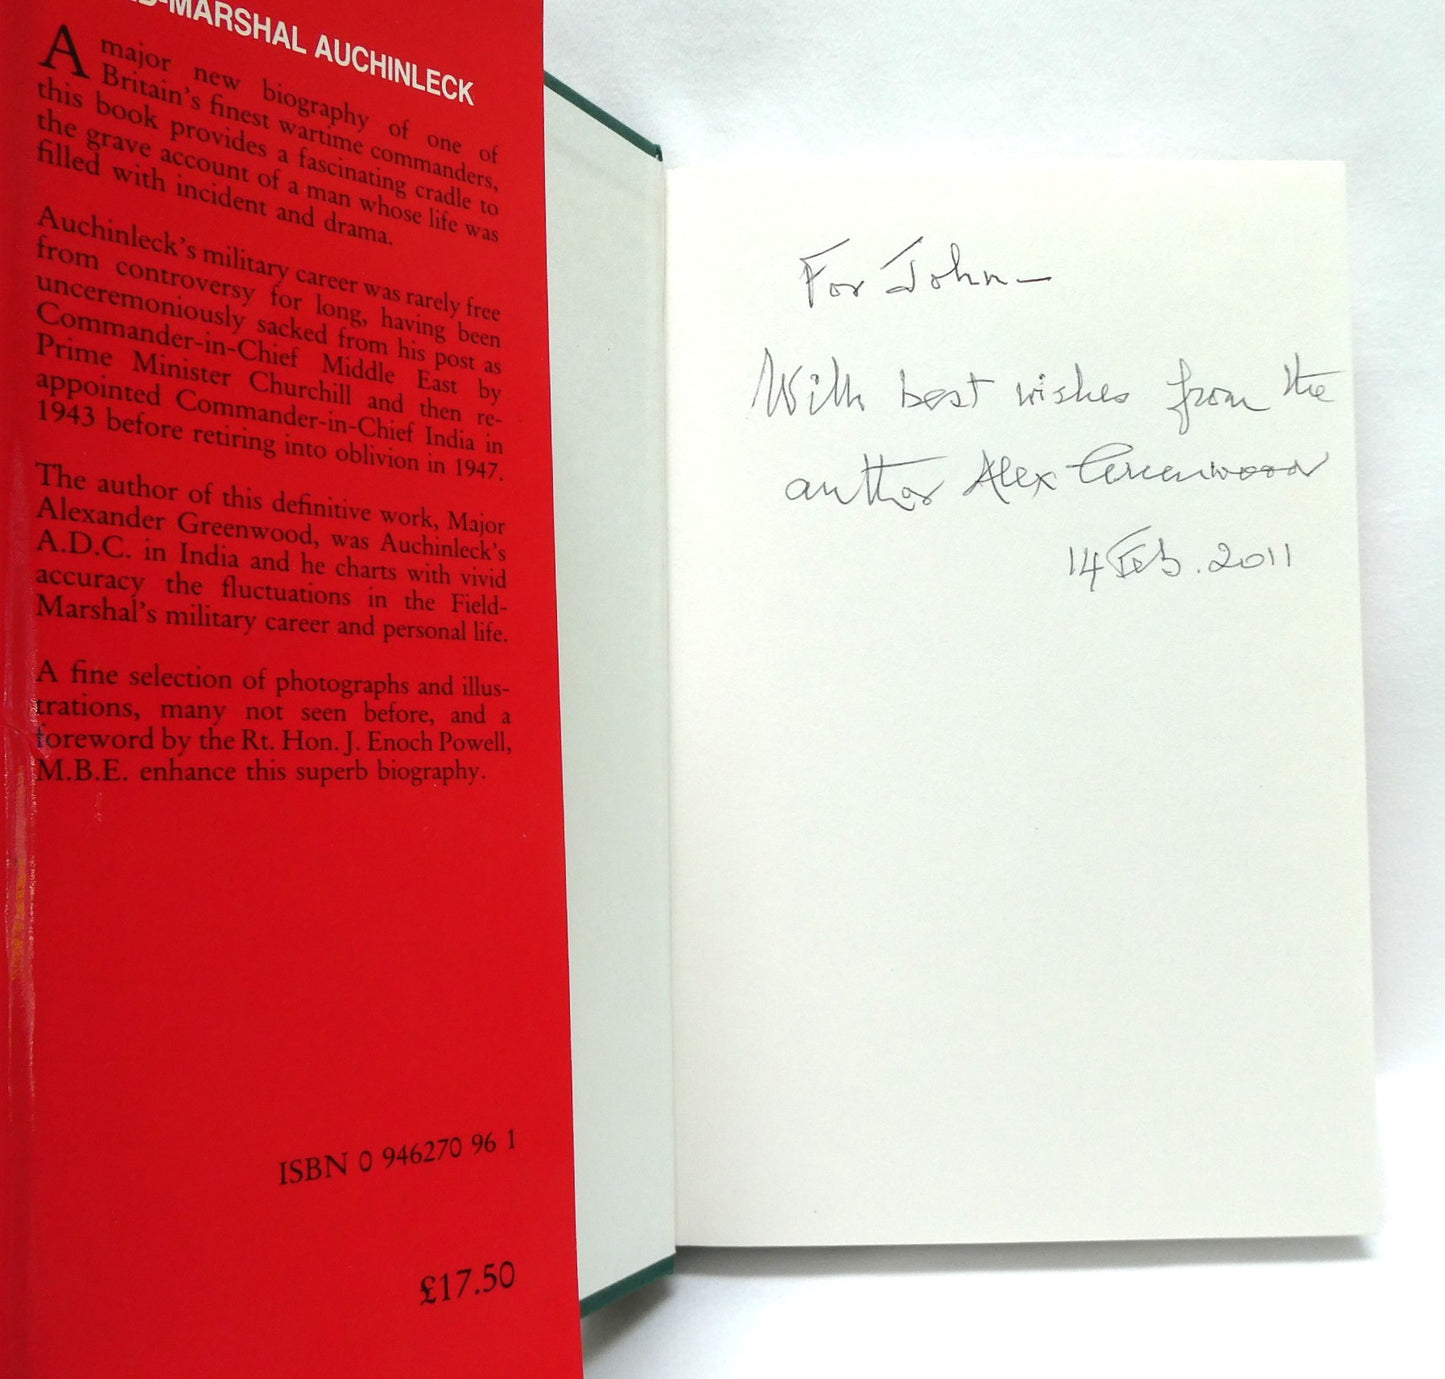 D-MARSHAL AUCHINLECK
A major new biography of one of
Britain's finest wartime commanders,
this book provides a fascinating cradle to
the grave account of a man whose life was
filled with incident and drama.
Auchinleck's military career was rarely free
from controversy for long, having been
unceremoniously sacked from his post as
Commander-in-Chief Middle East by
Prime Minister Churchill and then re-
appointed Commander-in-Chief India in
1943 before retiring into oblivion in 1947.
The author of this definitive work, Major
Alexander Greenwood, was Auchinleck's
A.D.C. in India and he charts with vivid
accuracy the fluctuations in the Field-
Marshal's military career and personal life.
A fine selection of photographs and illus-
trations, many not seen before, and a
foreword by the Rt. Hon. J. Enoch Powell,
M.B.E. enhance this superb biography.
ISBN 0 946270 96 1
£17.50
For John –
With best wishes from the
author Alex Greenwood
14 Feb. 2011